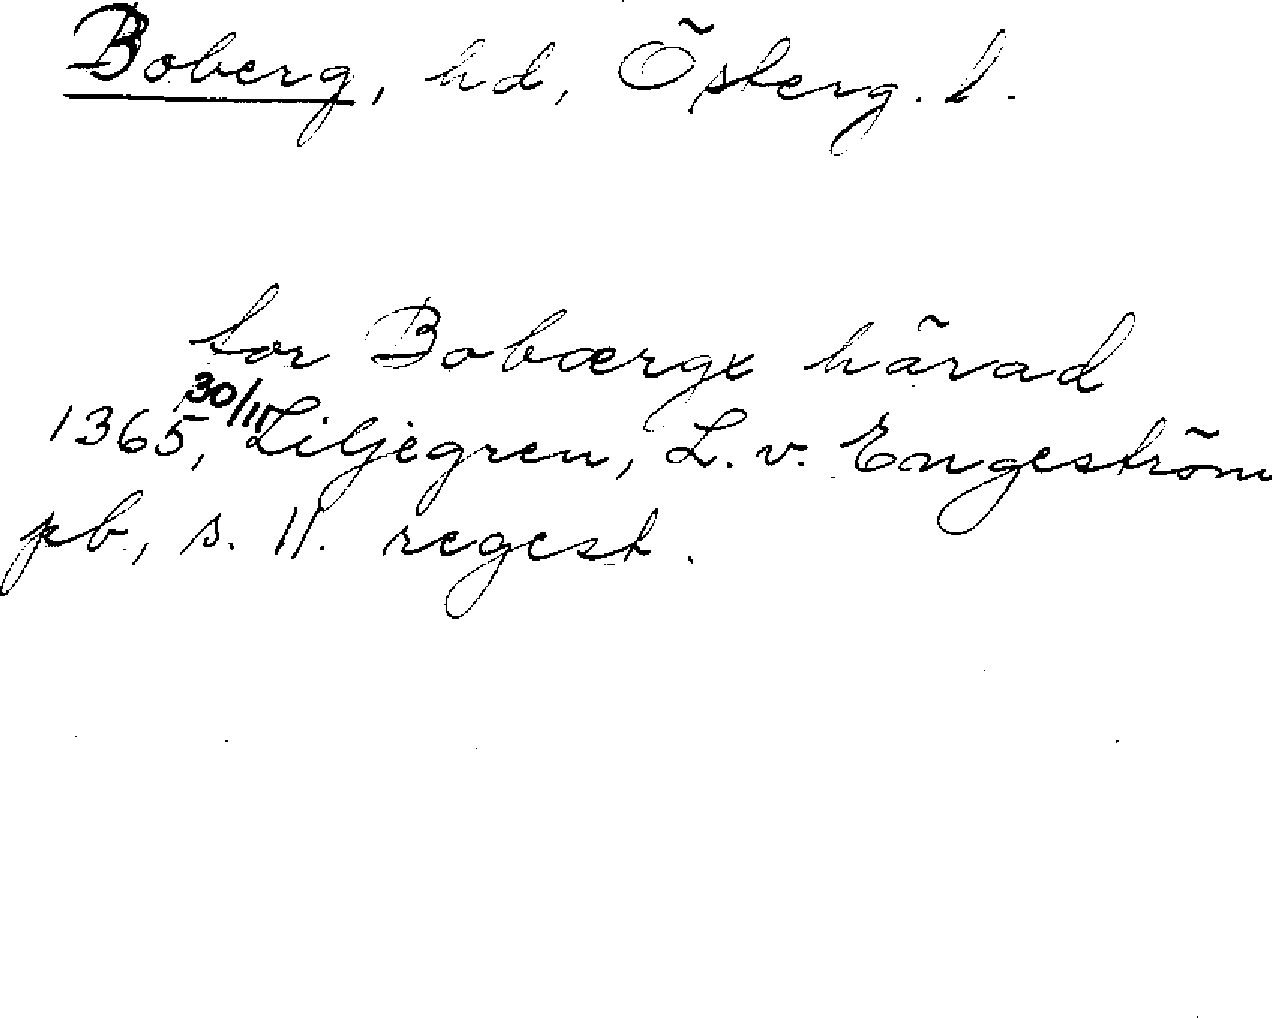 Boberg, hd, Österg. l.
tor Bobærgx härad
1365 30/11, Liljegren, L. v. Engeström
pb, s. 11. regest.